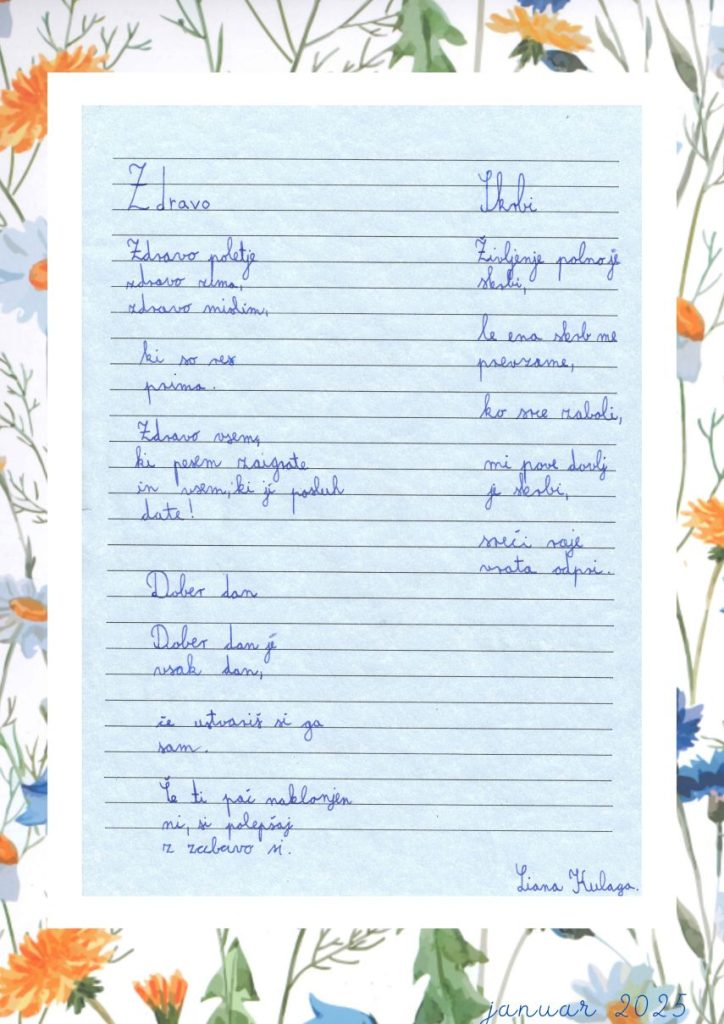 Zdravo
Zdravo poletje
zdravo zima,
zdravo mislim,
ki so res
prima.
Zdravo vsem,
ki pesem zaigrate
in vsem, ki ji posluh
date!
Dober dan
Dober dan je
vsak dan,
če ustvariš si ga
sam.
Če ti pač naklonjen
ni, si polepšaj
z zabavo si.
Skrbi
Življenje polno je
skrbi,
le ena skrb me
prevzame,
ko srce zaboli,
mi pove dovlj
je skrbi,
sreči raje
vrata odpri.
Liana Kulaga.
januar 2025